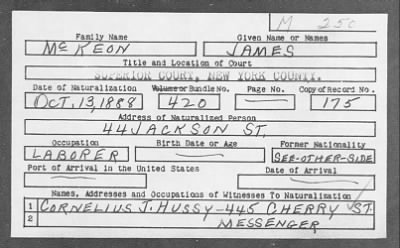 M 250
Family Name Given Name or Names
McKEON JAMES
Title and Location of Court
SUPERIOR COURT, NEW YORK COUNTY.
Date of Naturalization Volume or Bundle No. Page No. Copy of Record No.
OCT. 13, 1888 420 175
Address of Naturalized Person
44 JACKSON ST.
Occupation Birth Date or Age Former Nationality
LABORER SEE-OTHER-SIDE
Port of Arrival in the United States Date of Arrival
Names, Addresses and Occupations of Witnesses To Naturalization
1 CORNELIUS J. HUSSY-445 CHERRY ST.
2 MESSENGER